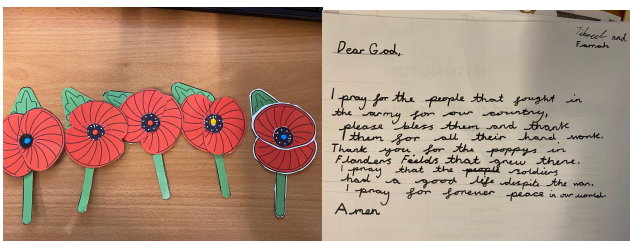 Jibreel and
Farrah
Dear God,
I pray for the people that fought in
the army for our country,
please bless them and thank
them for all their hard work.
Thank you for the poppys in
Flanders Fields that grew there.
I pray that the people soldiers
had a good life despite the war.
I pray for forever peace in our world.
Amen